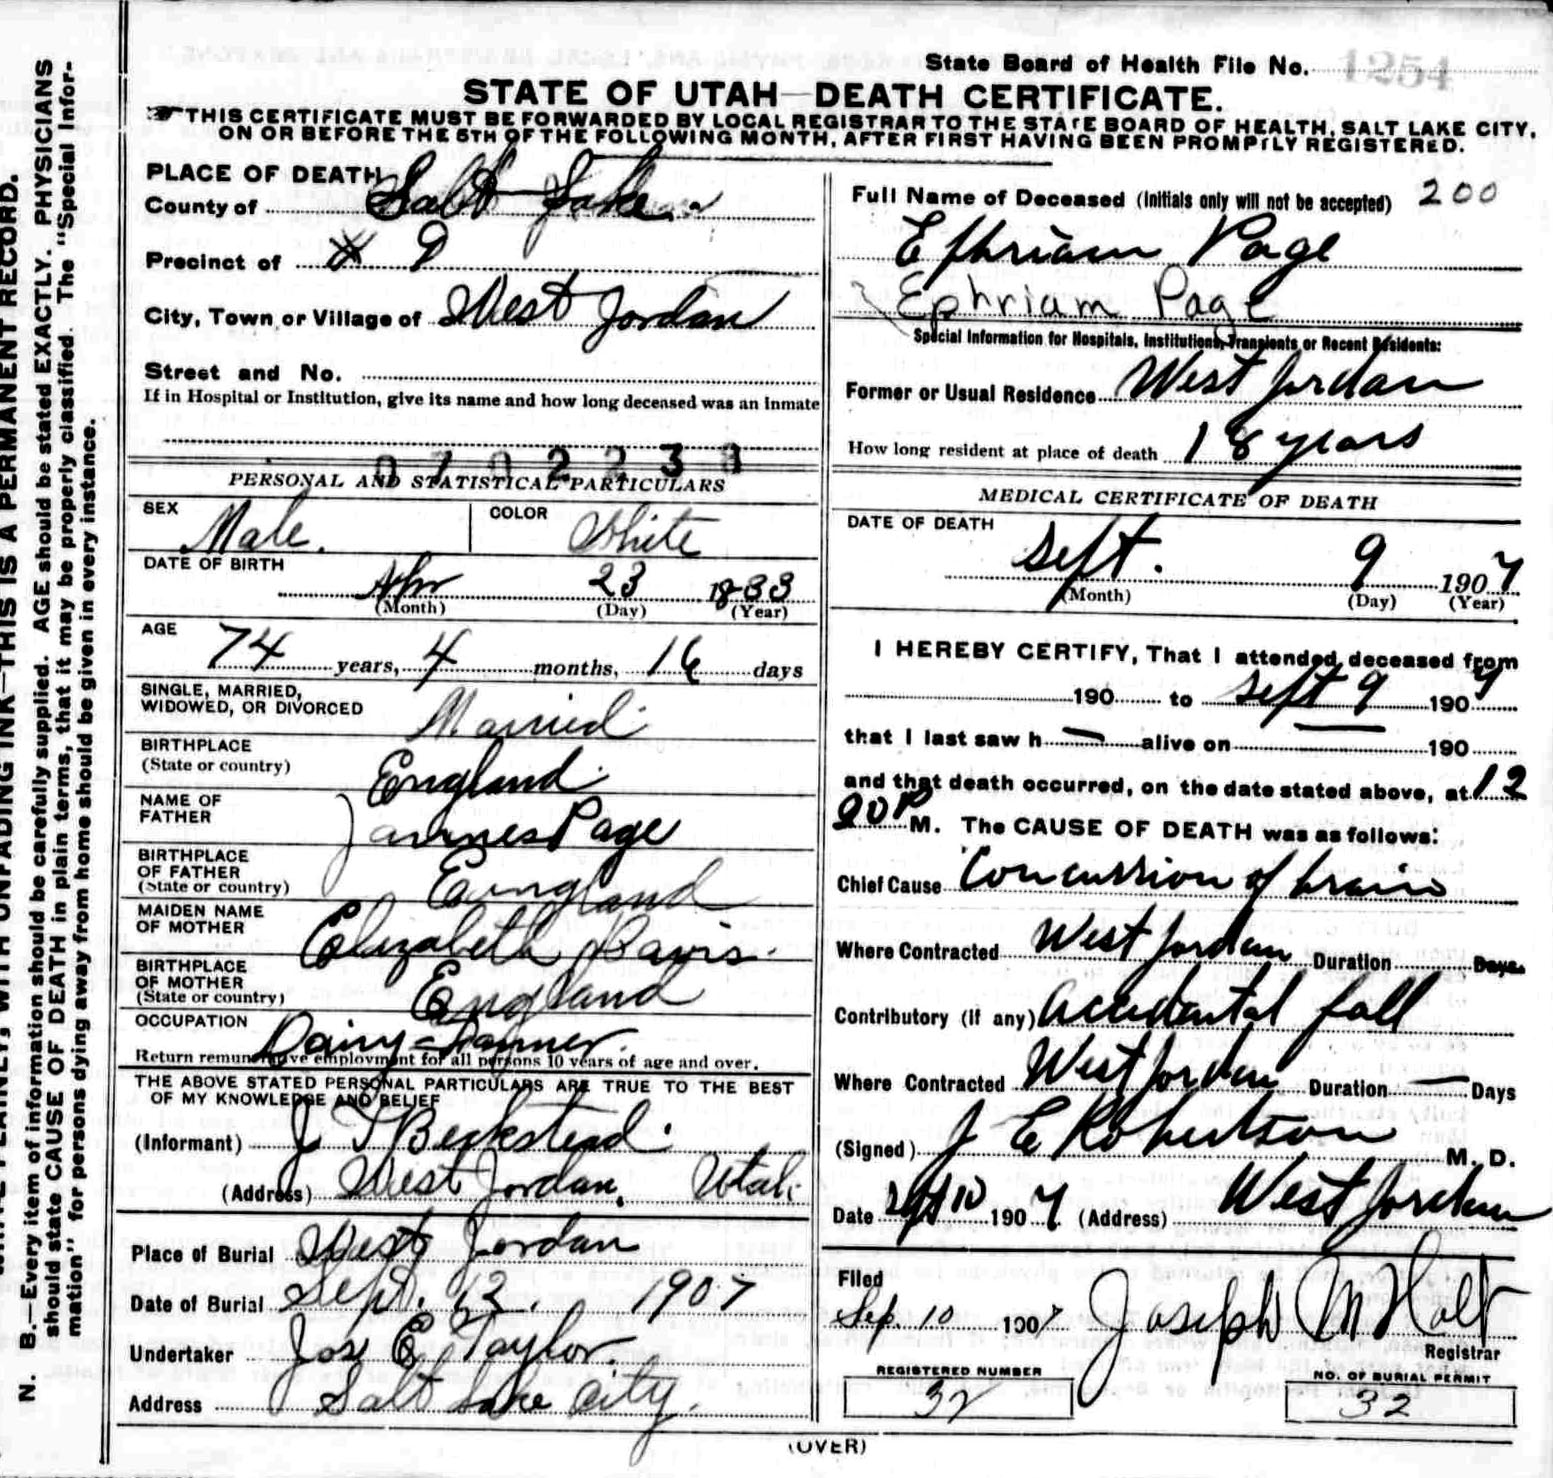 State Board of Health File No. 1254
STATE OF UTAH—DEATH CERTIFICATE.
THIS CERTIFICATE MUST BE FORWARDED BY LOCAL REGISTRAR TO THE STATE BOARD OF HEALTH, SALT LAKE CITY,
ON OR BEFORE THE 5TH OF THE FOLLOWING MONTH, AFTER FIRST HAVING BEEN PROMPTLY REGISTERED.
N. B.—Every item of information should be carefully supplied. AGE should be stated EXACTLY. PHYSICIANS
should state CAUSE OF DEATH in plain terms, that it may be properly classified. The "Special Infor-
mation" for persons dying away from home should be given in every instance.
WITH UNFADING INK—THIS IS A PERMANENT RECORD.
PLACE OF DEATH
County of Salt Lake
Precinct of 9
City, Town or Village of West Jordan
Street and No.
If in Hospital or Institution, give its name and how long deceased was an Inmate
PERSONAL AND STATISTICAL PARTICULARS
SEX Male. COLOR White
DATE OF BIRTH Apr 23 1833
(Month) (Day) (Year)
AGE 74 years, 4 months, 16 days
SINGLE, MARRIED,
WIDOWED, OR DIVORCED Married
BIRTHPLACE
(State or country) England
NAME OF
FATHER James Page
BIRTHPLACE
OF FATHER
(State or country) England
MAIDEN NAME
OF MOTHER Elizabeth Davis
BIRTHPLACE
OF MOTHER
(State or country) England
OCCUPATION Dairy-Farmer.
Return remunerative employment for all persons 10 years of age and over.
THE ABOVE STATED PERSONAL PARTICULARS ARE TRUE TO THE BEST
OF MY KNOWLEDGE AND BELIEF
(Informant) J T Beckstead
(Address) West Jordan, Utah
Place of Burial West Jordan
Date of Burial Sept. 12. 1907
Undertaker Jos E Taylor.
Address Salt Lake City.
Full Name of Deceased (Initials only will not be accepted) 200
Ephriam Page
Ephriam Page
Special Information for Hospitals, Institutions, Transients or Recent Residents:
Former or Usual Residence West Jordan
How long resident at place of death 18 years
MEDICAL CERTIFICATE OF DEATH
DATE OF DEATH
Sept. 9 1907
(Month) (Day) (Year)
I HEREBY CERTIFY, That I attended deceased from
190 to Sept 9 1907
that I last saw h — alive on — 190
and that death occurred, on the date stated above, at 12
M. The CAUSE OF DEATH was as follows:
Chief Cause Concussion of brain
Where Contracted West Jordan Duration Days
Contributory (if any) Accidental fall
Where Contracted West Jordan Duration — Days
(Signed) J E Robertson M. D.
Date Sept 10 1907 (Address) West Jordan
Filed
Sep. 10 1907 Joseph M Holt
Registrar
REGISTERED NUMBER NO. OF BURIAL PERMIT
32 32
(OVER)